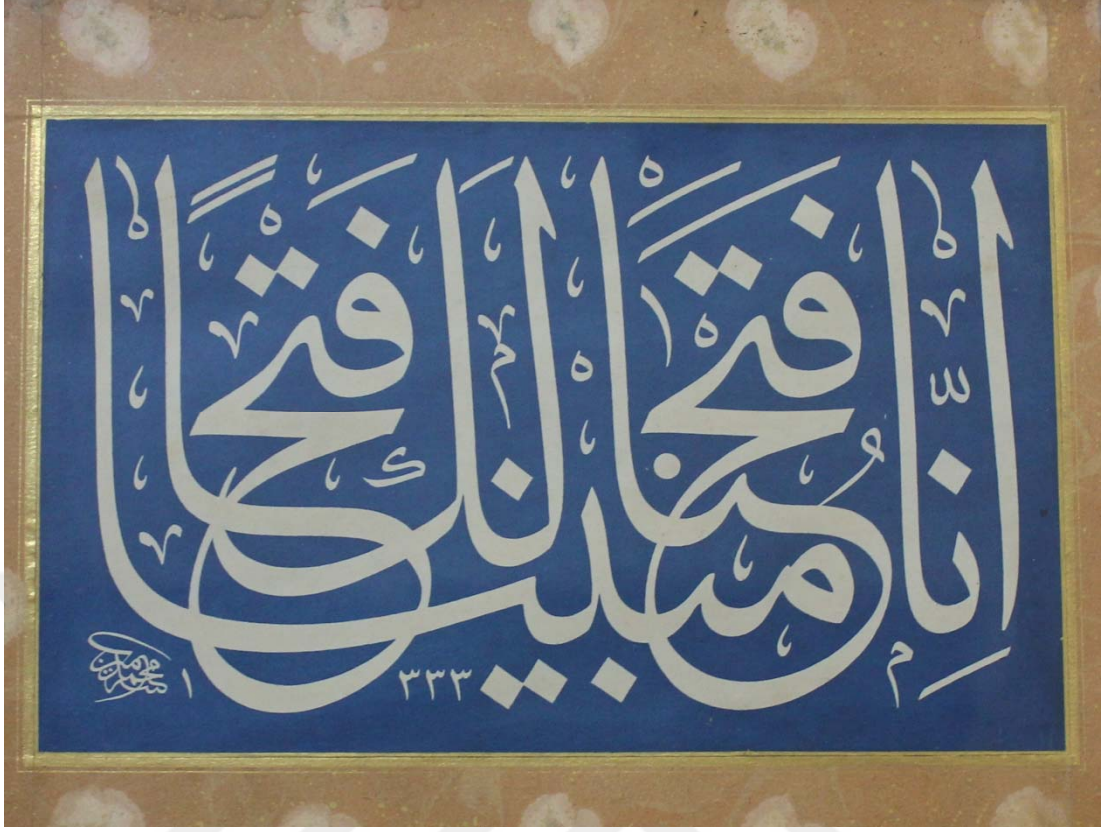 اِنَّا فَتَحْنَا لَكَ فَتْحًا مُبِينًا
١٣٣٣